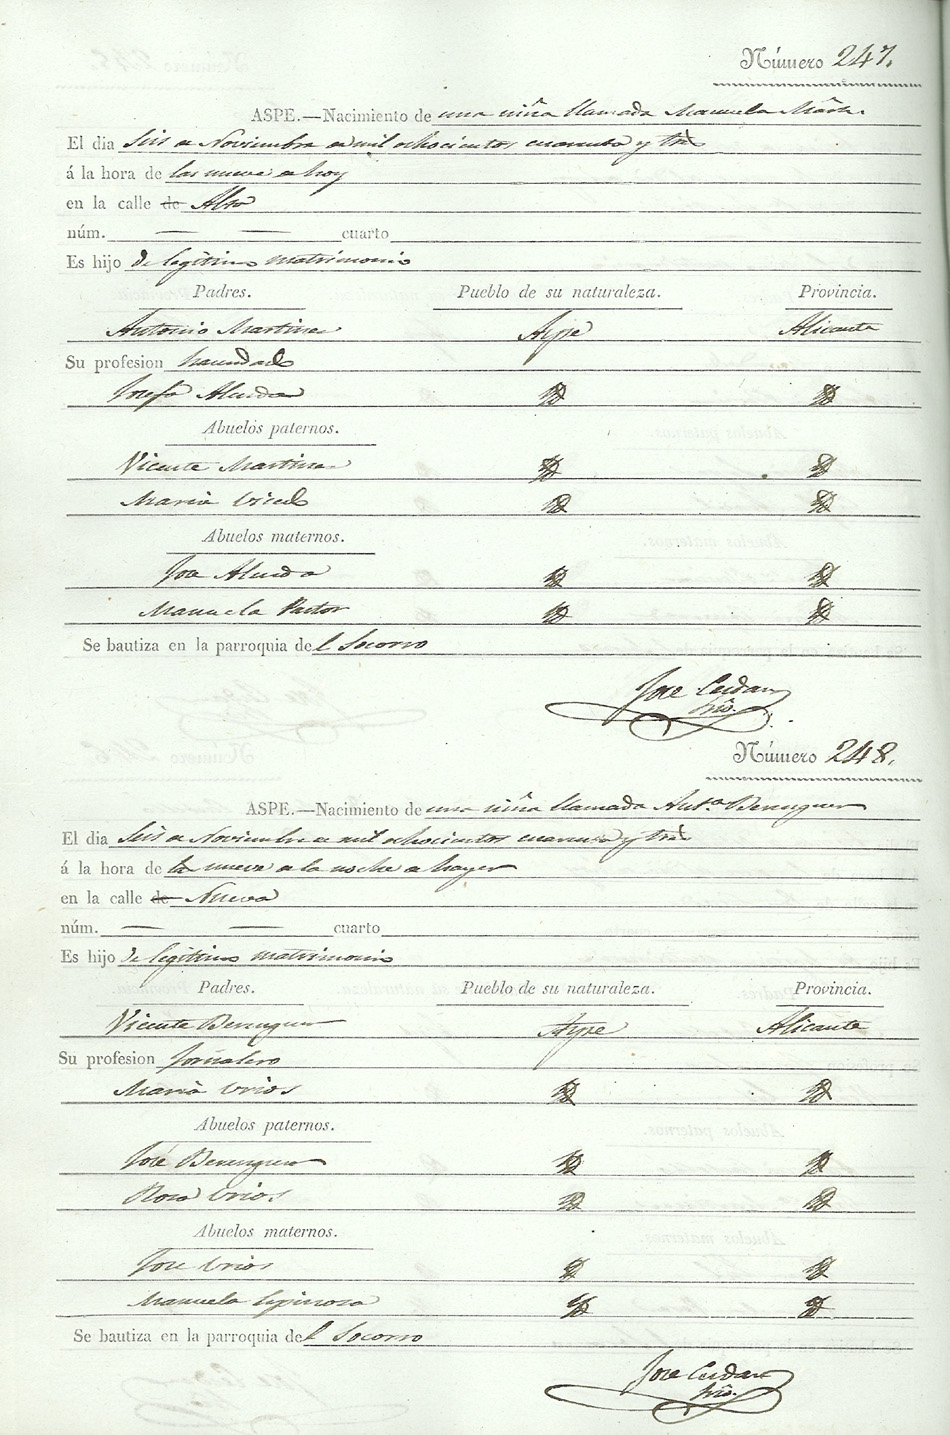 Número 247.
ASPE.—Nacimiento de una niña llamada Manuela Martz.
El dia Seis de Noviembre de mil ochocientos cuarenta y tres
á la hora de las nueve de hoy
en la calle de Alta
núm. — — cuarto
Es hijo de legitimo matrimonio
Padres. Pueblo de su naturaleza. Provincia.
Antonio Martinez Aspe Alicante
Su profesion hacendado
Josefa Almodo
Abuelos paternos.
Vicente Martinez
Maria
Abuelos maternos.
Jose
Manuela Pastor
Se bautiza en la parroquia del Socorro
Jose Cerdan
Srio.
Número 248.
ASPE.—Nacimiento de una niña llamada Ant.a Berenguer
El dia Seis de Noviembre de mil ochocientos cuarenta y tres
á la hora de la nueve de la noche de hayer
en la calle de Nueva
núm. — — cuarto
Es hijo de legitimo matrimonio
Padres. Pueblo de su naturaleza. Provincia.
Vicente Berenguer Aspe Alicante
Su profesion Jornalero
Maria Urios
Abuelos paternos.
José Berenguer
Rosa Urios
Abuelos maternos.
Jose Urios
Manuela Espinosa
Se bautiza en la parroquia del Socorro
Jose Cerdan
Srio.